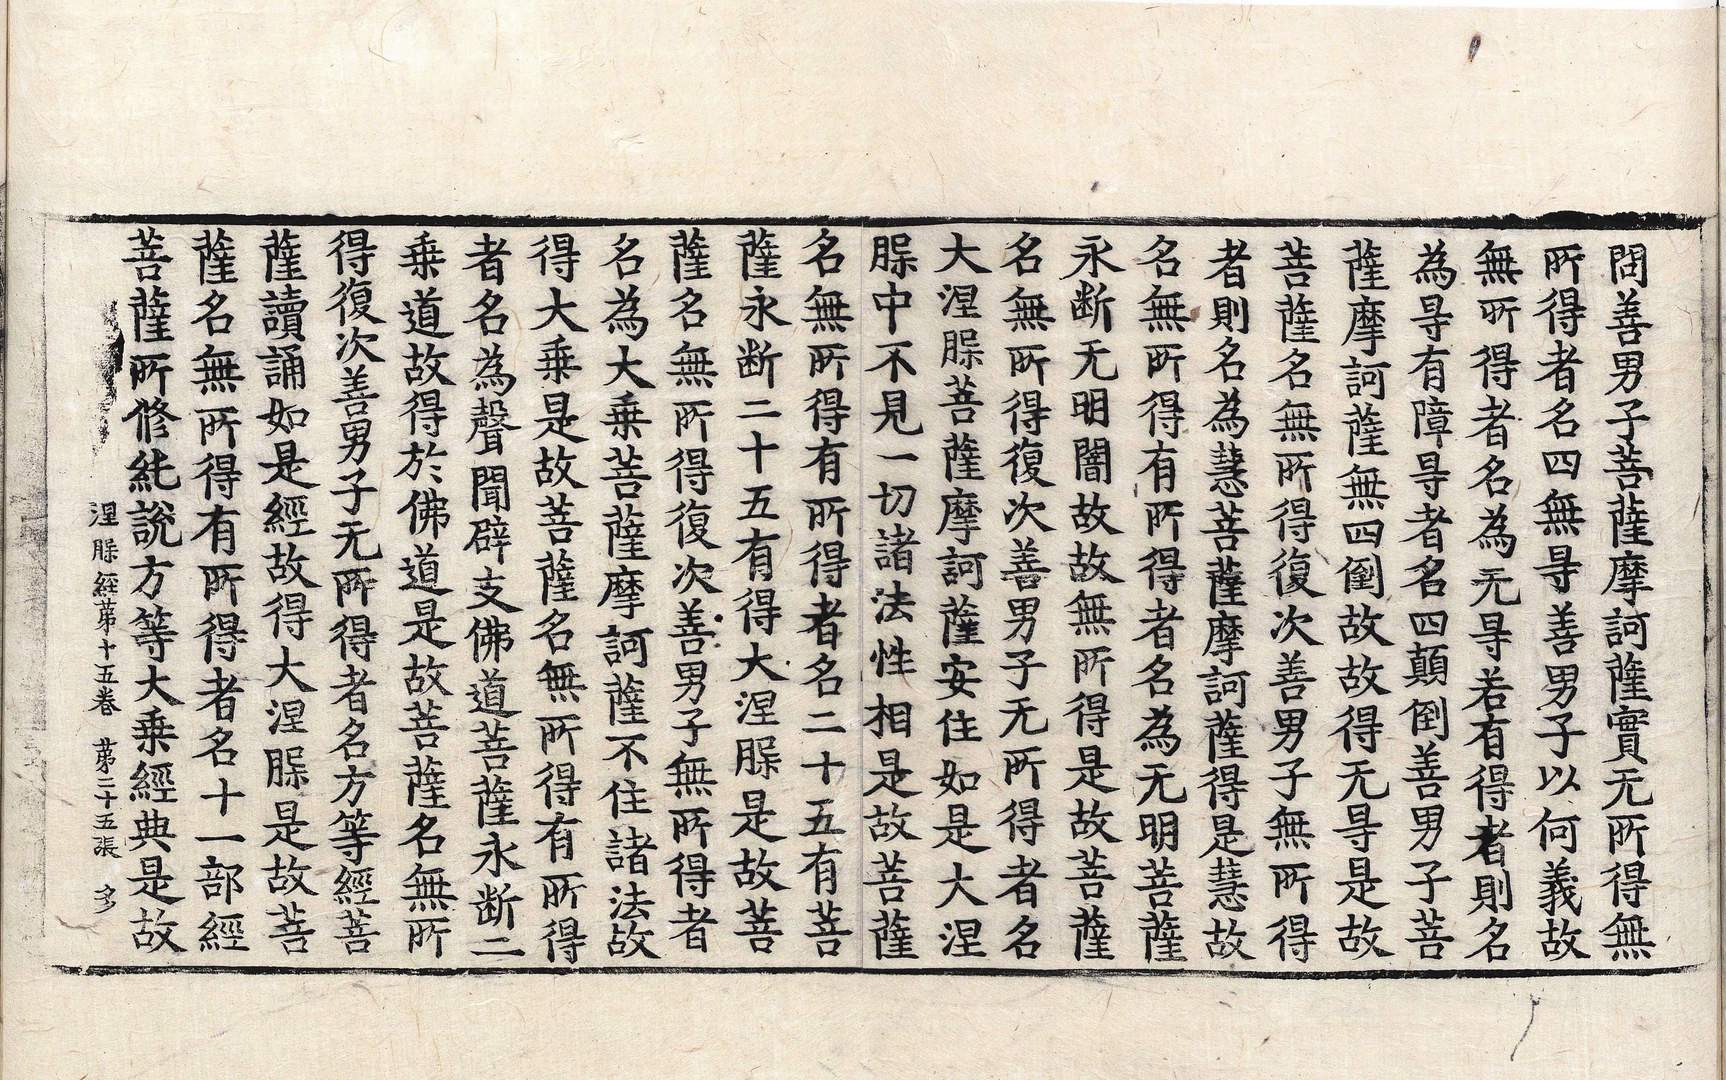 問善男子菩薩摩訶薩實无所得無
所得者名四無㝵善男子以何義故
無所得者名為无㝵若有得者則名
為㝵有障㝵者名四顛倒善男子菩
薩摩訶薩無四倒故故得无㝵是故
菩薩名無所得復次善男子無所得
者則名為慧菩薩摩訶薩得是慧故
名無所得有所得者名為无明菩薩
永断无明闇故故無所得是故菩薩
名無所得復次善男子无所得者名
大涅槃菩薩摩訶薩安住如是大涅
槃中不見一切諸法性相是故菩薩
名無所得有所得者名二十五有菩
薩永断二十五有得大涅槃是故菩
薩名無所得復次善男子無所得者
名為大乗菩薩摩訶薩不住諸法故
得大乗是故菩薩名無所得有所得
者名為聲聞辟支佛道菩薩永断二
乗道故得於佛道是故菩薩名無所
得復次善男子无所得者名方等經菩
薩讀誦如是經故得大涅槃是故菩
薩名無所得有所得者名十一部經
菩薩所修純說方等大乗經典是故
涅槃經苐十五卷 苐二十五張 多